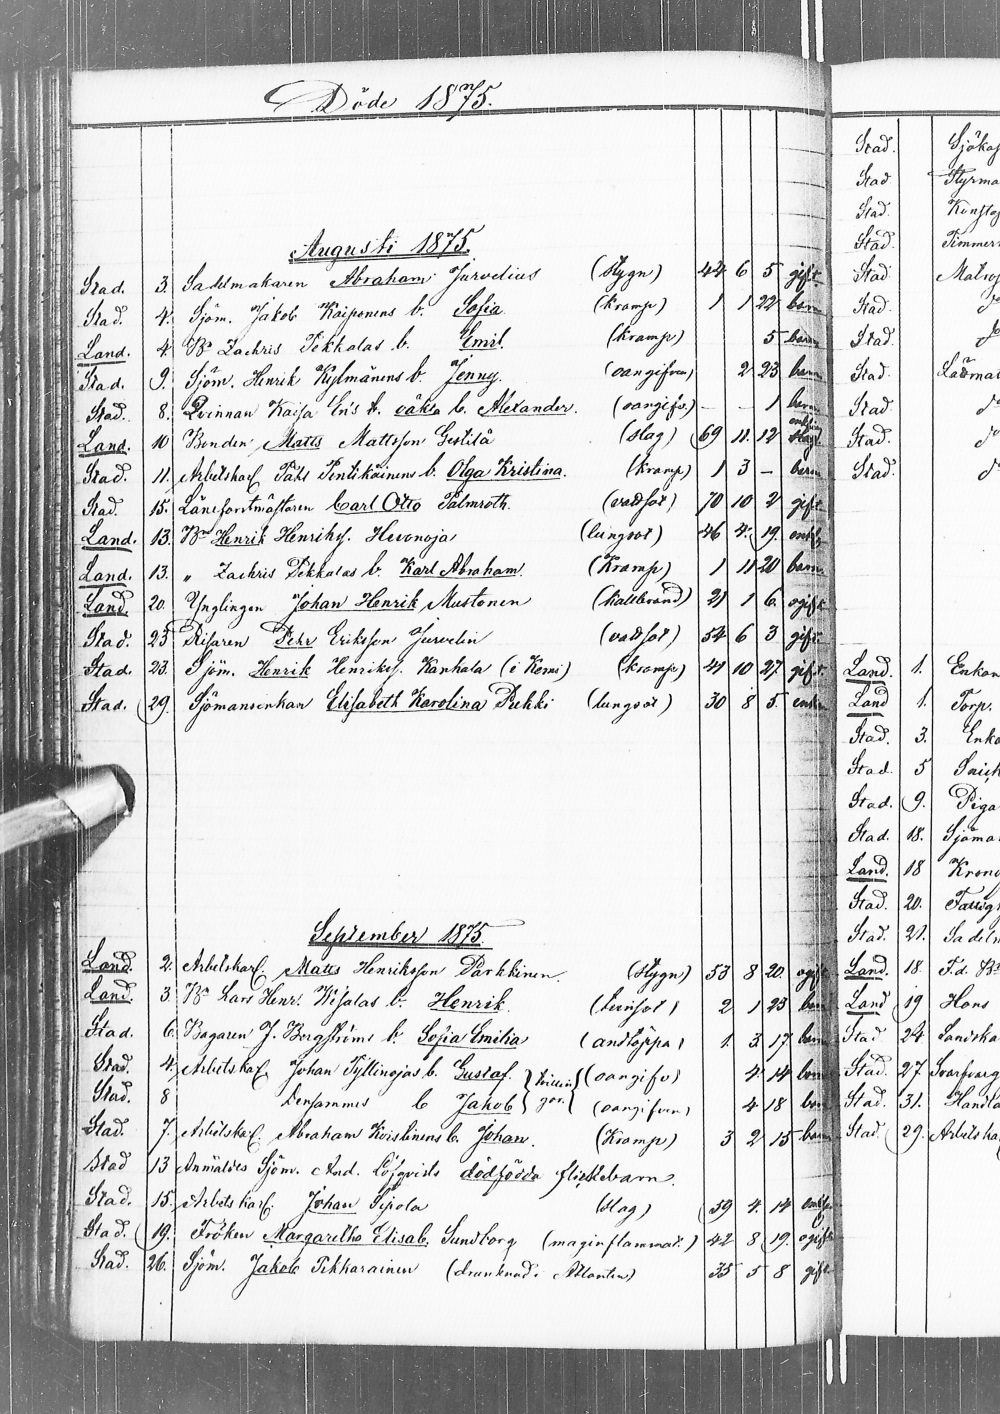 Döde 1875.
Augusti 1875.
Stad. 3. Sadelmakaren Abraham Jurvelius (stygn) 44 6 5 gift
Stad. 4. Sjöm. Jakob Kaiponens b. Sofia (kramp) 1 1 22 barn
Land. 4. Bn Zachris Pekkalas b. Emil (kramp) 5 barn
Stad. 9. Sjöm. Henrik Kylmänens b. Jenny. (oangifven) 2 23 barn
Stad. 8. Qvinnan Kaisa oäkta b. Alexander. (oangifv.) – – 1 barn
Land. 10 Bonden Matts Mattsson (slag) 69 11. 12
Stad. 11. Arbetskarl b. Olga Kristina. (kramp) 1 3 – barn
Stad. 15. Länsforstmästaren Carl Otto Palmroth. (vattsot) 70 10 2 gift
Land. 13. Bn Henrik Henrikss. (lungsot) 46 4. 19.
Land. 13. „ Zachris Pekkalas b. Karl Abraham. (Kramp) 1 11 20 barn
Land. 20. Ynglingen Johan Henrik Mustonen (kallbrand) 21 1 6. ogift
Stad. 23 Petr Eriksson Jurvelin (vattsot) 54 6 3 gift
Stad. 23. Sjöm. Henrik Henrikss. Kanhala (i Kemi) (kramp) 41 10 27. gift.
Stad. 29. Sjömansenkan Elisabeth Karolina Pukki (lungsot) 30 8 5.
September 1875
Land. 2. Arbetskarl. Matts Henriksson Parkkinen (stygn) 53 8 20. ogift
Land. 3. Bn Lars Henr. b. Henrik. 2 1 23 barn
Stad. 6. Bagaren J. Bergströms b. Sofia Emilia (andtäppa) 1. 3 17. barn
Stad. 4. Arbetskarl Johan b. Gustaf. (oangifv) 4. 14 barn
Stad. 8 Densammes b Jakob (oangifven) 4 18 barn
Stad. 7. Arbetskarl. Abraham Koistinens b. Johan. (Kramp) 3 2 15 barn
Stad 13 Anmäldes Sjöm. And. Löfqvists dödfödda flickebarn.
Stad. 15. Arbetskarl. Johan Sipola (slag) 59 4. 14
Stad. 19. Fröken Margaretha Elisab. Sundborg (maginflammat.) 42 8 19. ogift
Stad. 26. Sjöm. Jakob Tikkarainen (drunknad i Atlanten) 35 5 8 gift
Stad.
Stad Styrma
Stad. Konstap
Stad. Timmer
Stad Matros
Stad. d
Stad. d
Stad.
Stad. d
Stad. d
Stad. d
Land. 1. Enkan
Land 1. Torp.
Stad. 3. Enka
Stad 5 Snick
Stad. 9. Piga
Stad. 18. Sjöma
Land. 18 Krono
Stad. 20. Fattig
Stad. 21. Sadelm
Land. 18. F.d. Bn
Land 19 Hans
Stad 24. Landska
Stad. 27. Svarfvar
Stad. 31. Handla
Stad. 29. Arbetska